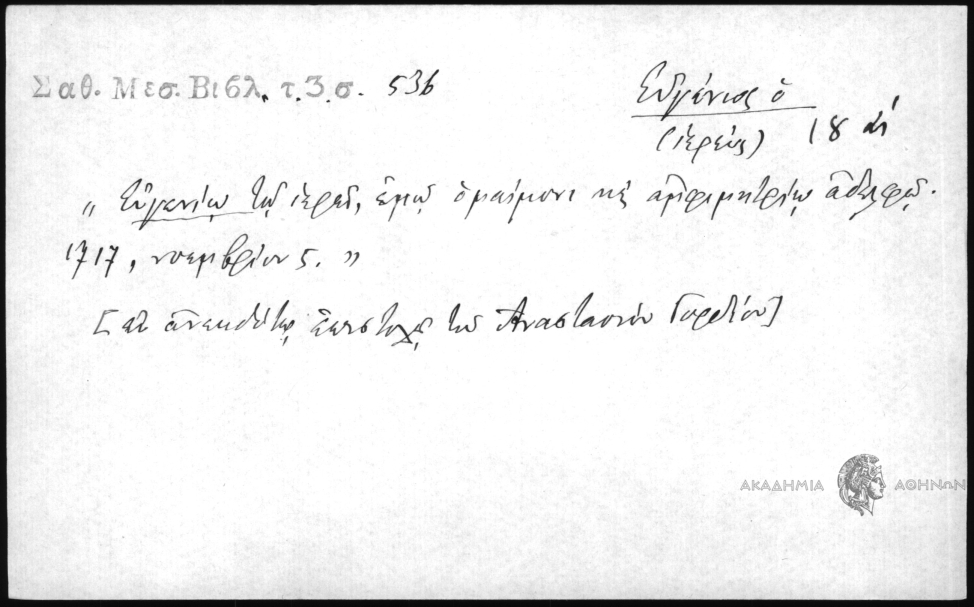 Σαθ. Μεσ. Βιβλ. τ. 3. σ. 536
Εὐγένιος ὁ
(ἱερεύς) 18 αἰ
" Εὐγενίῳ τῷ ἱερεῖ, ἐμῷ ὁμαίμονι καὶ ἀμφιμητρίῳ ἀδελφῷ.
1717, νοεμβρίου 5. "
[ἐν ἀνεκδότῳ ἐπιστολῇ τοῦ Ἀναστασίου Γορδίου]
ΑΚΑΔΗΜΙΑ ΑΘΗΝΩΝ